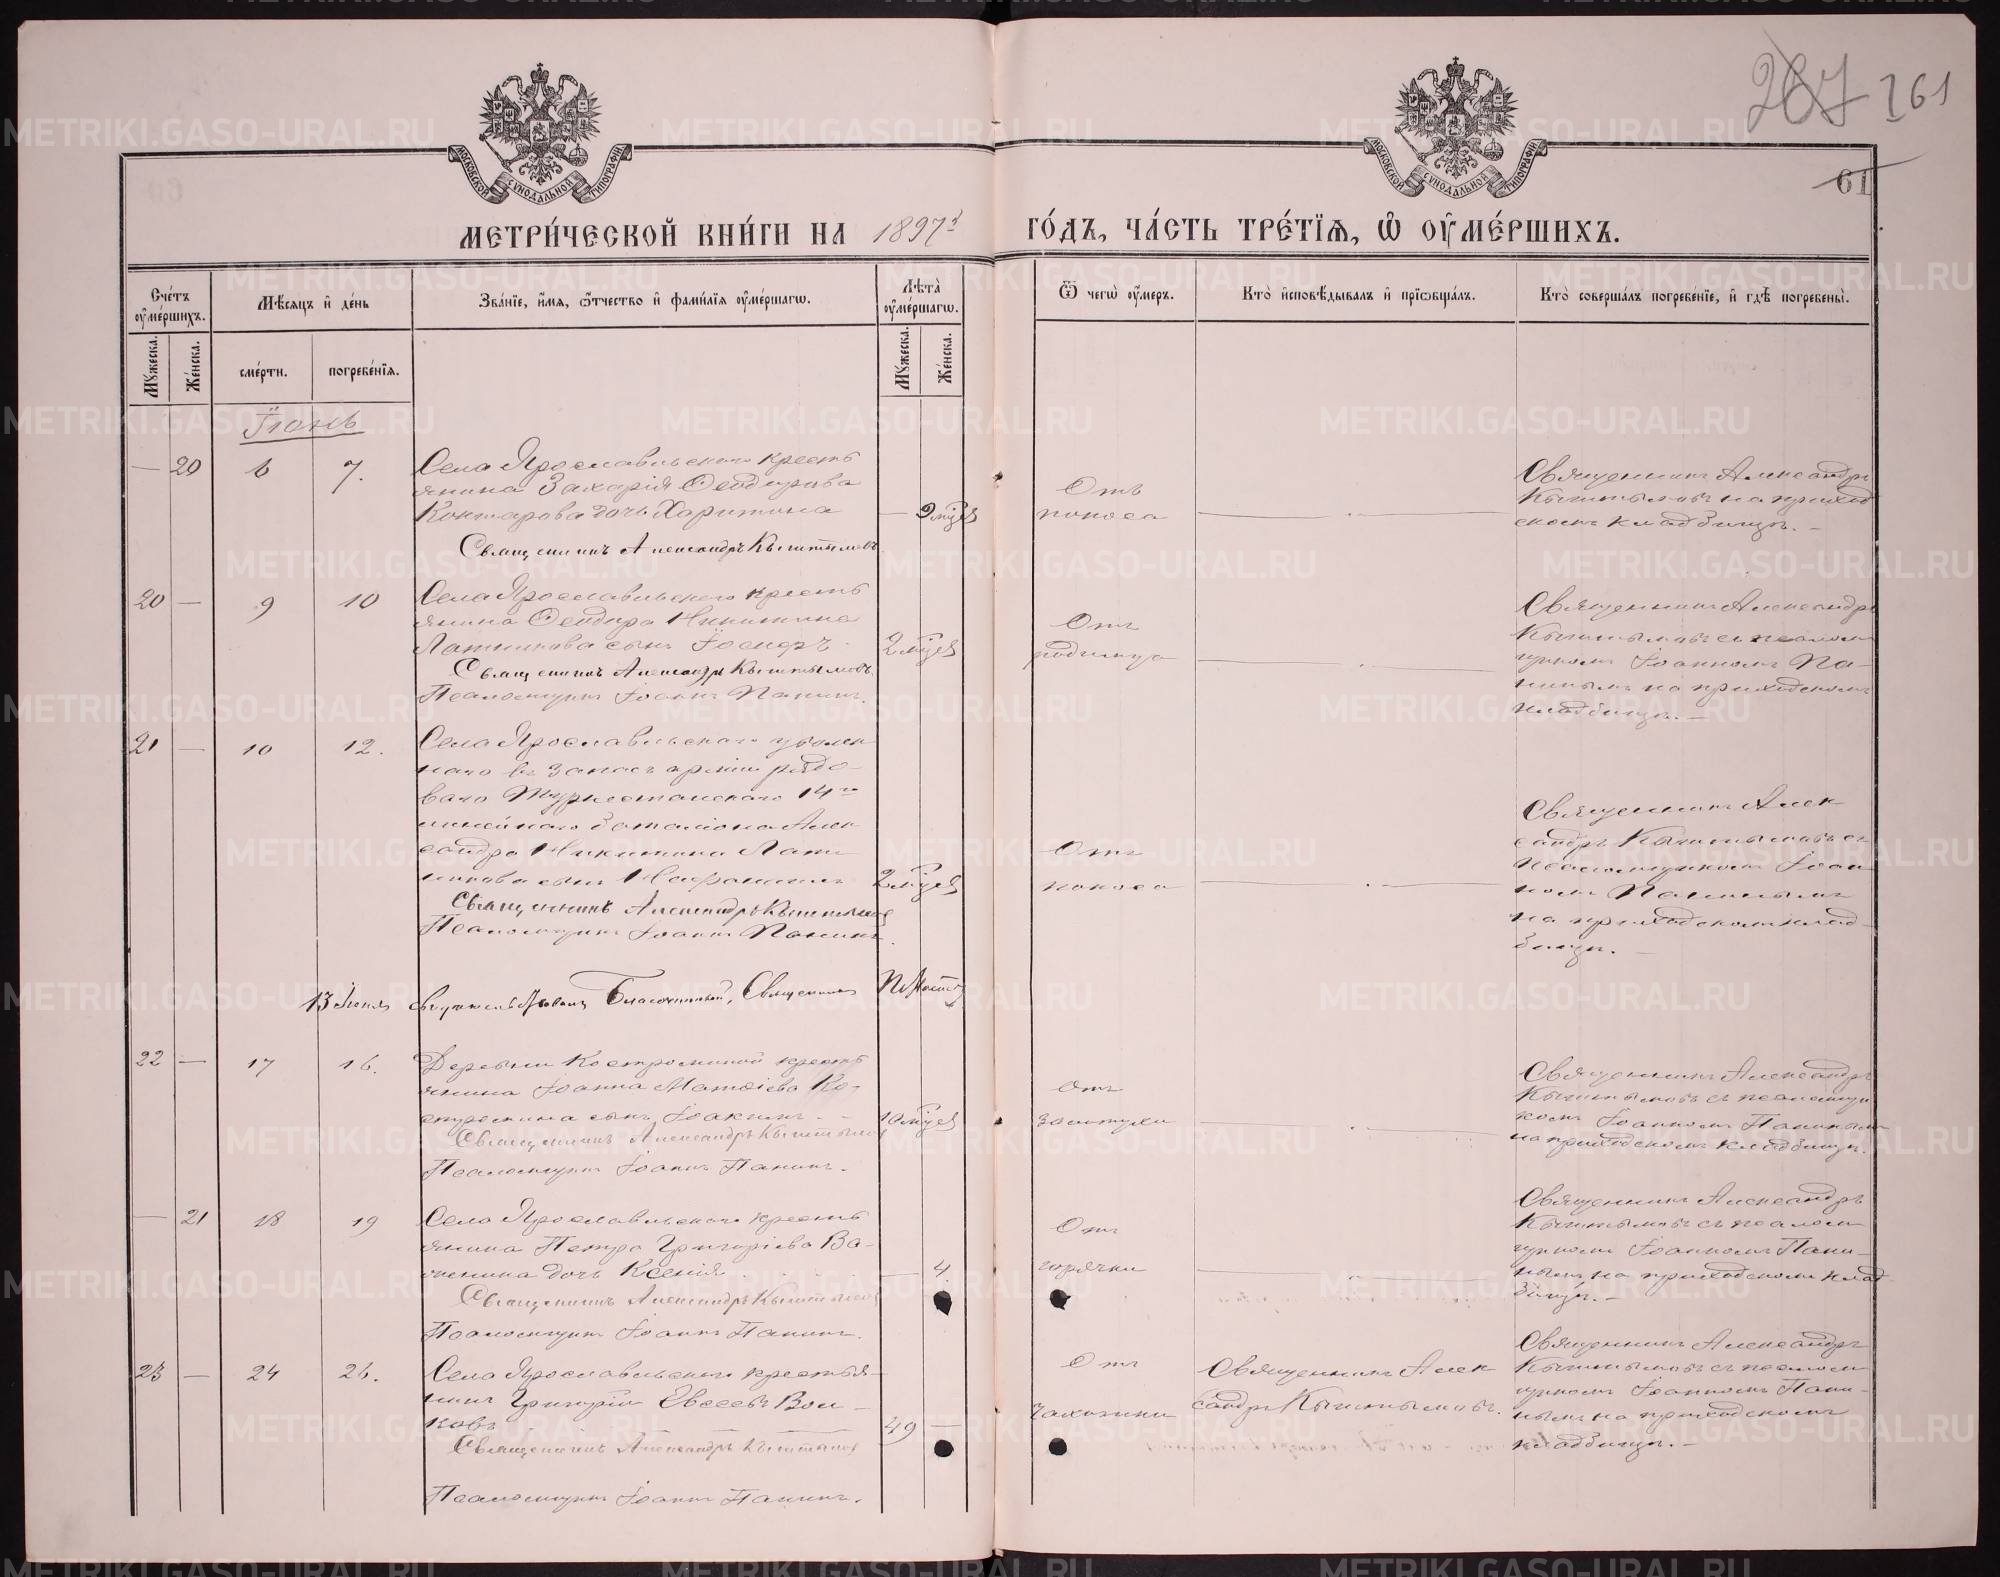 267 261
61
МОСКОВСКОЙ СѴНОДАЛЬНОЙ ТИПОГРАФІИ
МОСКОВСКОЙ СѴНОДАЛЬНОЙ ТИПОГРАФІИ
МЕТРИ́ЧЕСКОЙ КНИ́ГИ НА 1897й
ГО́ДЪ, ЧА́СТЬ ТРЕ́ТІѦ, Ѡ ОУМЕ́РШИХЪ.
Сче́тъ оумершихъ.
Мѣсяцъ и день
Званіе, имя, отчество и фамилія оумершагѡ.
Лѣта оумершагѡ.
Ѿ чегѡ оумеръ.
Кто исповѣдывалъ и пріѡбщалъ.
Кто совершалъ погребеніе, и гдѣ погребены.
Мужеска.
Женска.
смерти.
погребенія.
Мужеска.
Женска.
Іюнь
— 20 6 7.
Села Ярославльскаго кресть
янина Захарія Ѳеодорова
Контарова дочь Харитина
Священникъ Александръ Кыштымовъ
— 9 мцев
Отъ
поноса
Священникъ Александръ
Кыштымовъ на приход
скомъ кладбищѣ. —
20 — 9 10
Села Ярославльскаго кресть
янина Ѳеодора Никитина
Латникова сынъ Іосифъ
Священникъ Александръ Кыштымовъ
Псаломщикъ Іоаннъ Панинъ.
2 мцев
Отъ
родимца
Священникъ Александръ
Кыштымовъ съ псалом
щикомъ Іоанномъ Па-
нинымъ на приходскомъ
кладбищѣ. —
21 — 10 12.
Села Ярославльскаго уволен
наго въ запасъ арміи рядо-
ваго Туркестанскаго 14го
линейнаго баталіона Алек
сандра Никитина Лат
никова сынъ
Священникъ Александръ Кыштымовъ
Псаломщикъ Іоаннъ Панинъ.
2 мцев
Отъ
поноса
Священникъ Алек
сандръ Кыштымовъ съ
псаломщикомъ Іоан
номъ Панинымъ
на приходскомъ клад-
бищѣ. —
13 Іюня свидѣтельствовалъ Благочинный, Священникъ
22 — 17 16.
Деревни Костроминой кресть
янина Іоанна Матѳіева Ко-
стромина сынъ Іоакимъ —
Священникъ Александръ Кыштымов
Псаломщикъ Іоаннъ Панинъ.
10 мцев
Отъ
золотухи
Священникъ Александръ
Кыштымовъ съ псаломщи
комъ Іоанномъ Панинымъ
на приходскомъ кладбищѣ.
— 21 18 19
Села Ярославльскаго кресть
янина Петра Григоріева Ва-
дочь Ксенія
Священникъ Александръ Кыштымов
Псаломщикъ Іоаннъ Панинъ.
— 4.
Отъ
горячки
Священникъ Александръ
Кыштымовъ съ псалом
щикомъ Іоанномъ Пани-
нымъ на приходскомъ клад
бищѣ. —
23 — 24 26.
Села Ярославльскаго крестья-
нинъ Григорій Евсеевъ Вол-
ковъ
Священникъ Александръ Кыштымов
Псаломщикъ Іоаннъ Панинъ.
49 —
Отъ
чахотки
Священникъ Алек
сандръ Кыштымовъ.
Священникъ Александръ
Кыштымовъ съ псалом
щикомъ Іоанномъ Пани-
нымъ на приходскомъ
кладбищѣ. —
METRIKI.GASO-URAL.RU